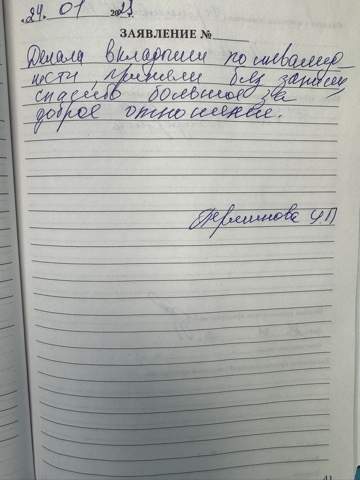 «24. 01 2023
ЗАЯВЛЕНИЕ №
Делала вкладыши по инвалид
ности, приняли без записи
спасибо большое за
доброе отношение.
Перминова
41